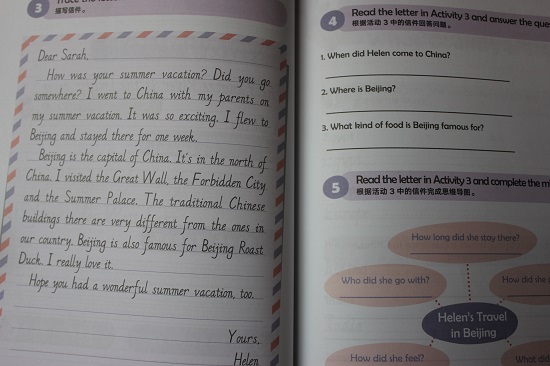 3
描写信件。
Dear Sarah,
How was your summer vacation? Did you go
somewhere? I went to China with my parents on
my summer vacation. It was so exciting. I flew to
Beijing and stayed there for one week.
Beijing is the capital of China. It's in the north of
China. I visited the Great Wall, the Forbidden City
and the Summer Palace. The traditional Chinese
buildings there are very different from the ones in
our country. Beijing is also famous for Beijing Roast
Duck. I really love it.
Hope you had a wonderful summer vacation, too.
Yours,
Helen
4 Read the letter in Activity 3 and answer the que
根据活动 3 中的信件回答问题。
1. When did Helen come to China?
2. Where is Beijing?
3. What kind of food is Beijing famous for?
5 Read the letter in Activity 3 and complete the m
根据活动 3 中的信件完成思维导图。
How long did she stay there?
Who did she go with?
How did she
Helen's Travel
in Beijing
How did she feel?
What did